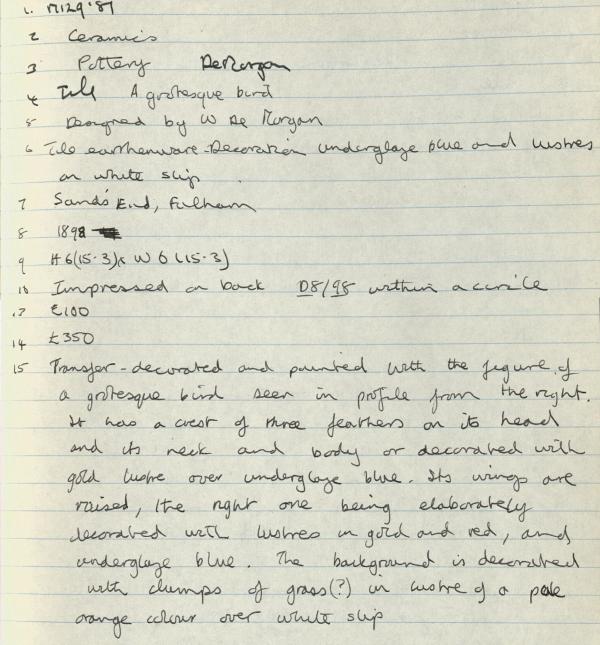 1. M129'87
2 Ceramics
3 Pottery De Morgan
4 Tile A grotesque bird
5 Designed by W De Morgan
6 Tile earthenware. Decoration underglaze blue and lustres
on white slip.
7 Sands End, Fulham
8 1898
9 H 6(15.3)x W 6 (15.3)
10 Impressed on back D8/98 within a circle
13 £100
14 £350
15 Transfer-decorated and painted with the figure of
a grotesque bird seen in profile from the right.
It has a crest of three feathers on its head
and its neck and body or decorated with
gold lustre over underglaze blue. Its wings are
raised, the right one being elaborately
decorated with lustres in gold and red, and
underglaze blue. The background is decorated
with clumps of grass(?) in lustre of a pale
orange colour over white slip